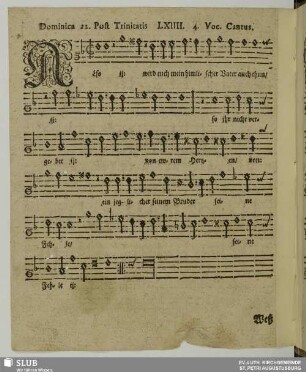 Dominica 22. Post Trinitatis LXIIII. 4. Voc. Cantus.
Also ij: wird euch mein himli- scher Vater auch thun/
ij: so ihr nicht ver-
ge- bet ij: von ewrem Hertz- en/ von
ein jeg- li- cher seinem Bruder sei- ne
Feh- le/ sei- ne
Feh- le ij:
Weß
SLUB
EV.-LUTH. KIRCHGEMEINDE
ST. PETRI AUGUSTUSBURG